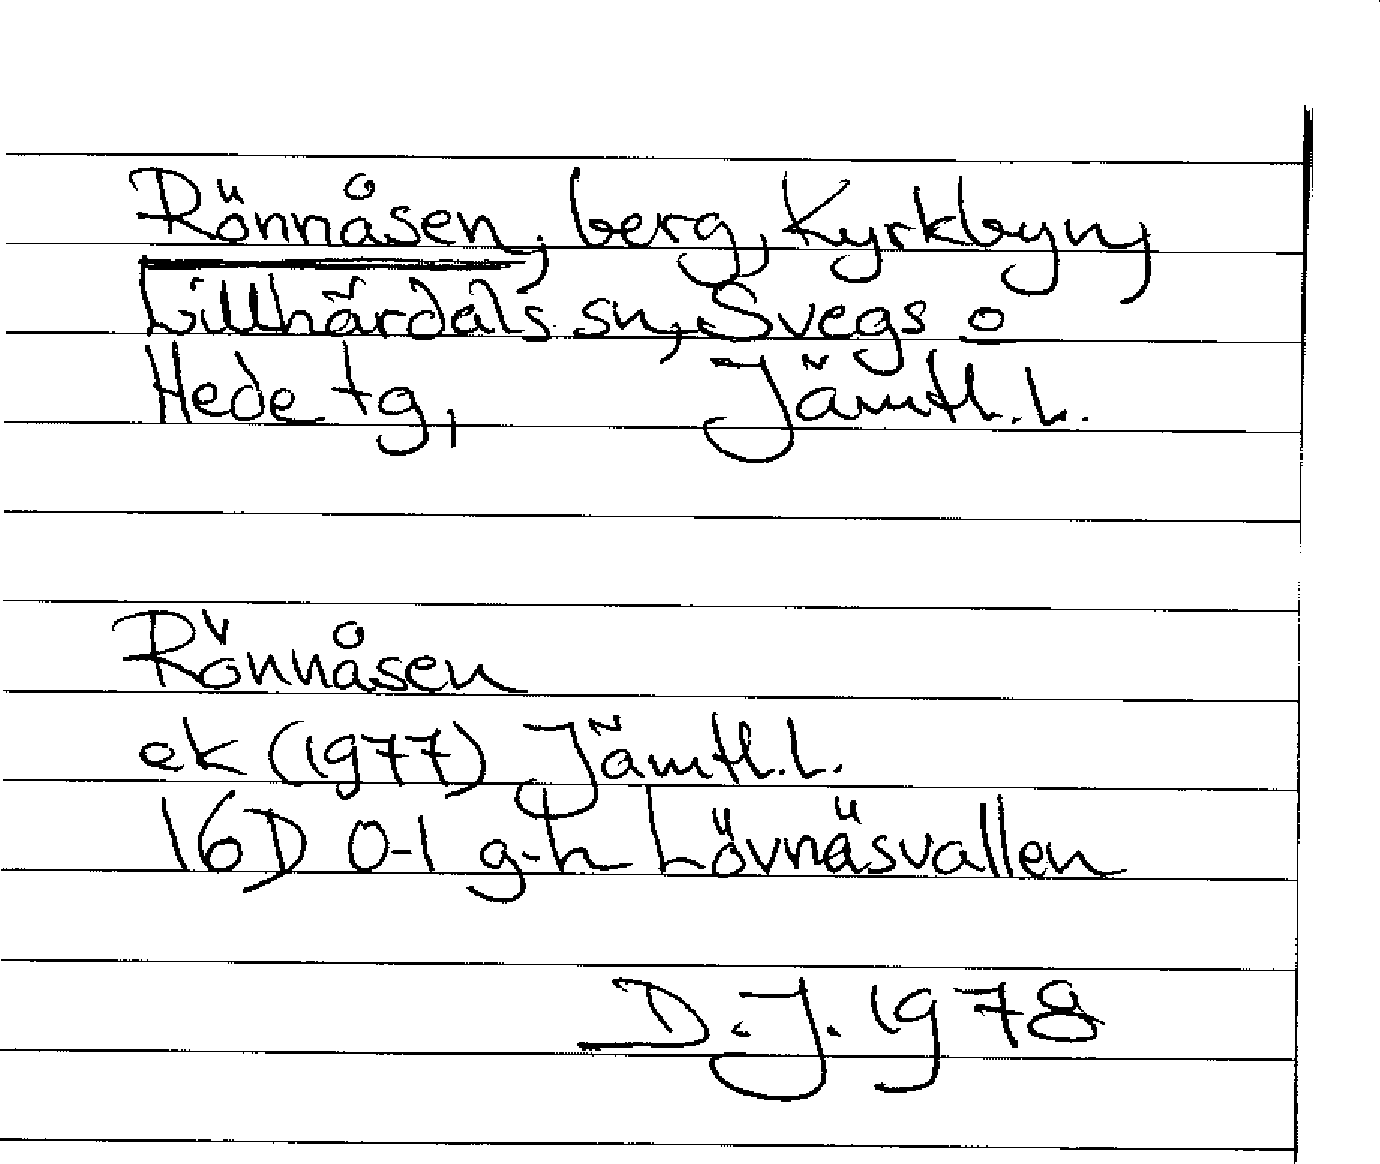 Rönnåsen, berg, Kyrkbyn,
Lillhärdals sn, Svegs o
Hede tg, Jämtl. L.
Rönnåsen
ek (1977) Jämtl. L.
16D 0-1 g-h Lövnäsvallen
D.J. 1978